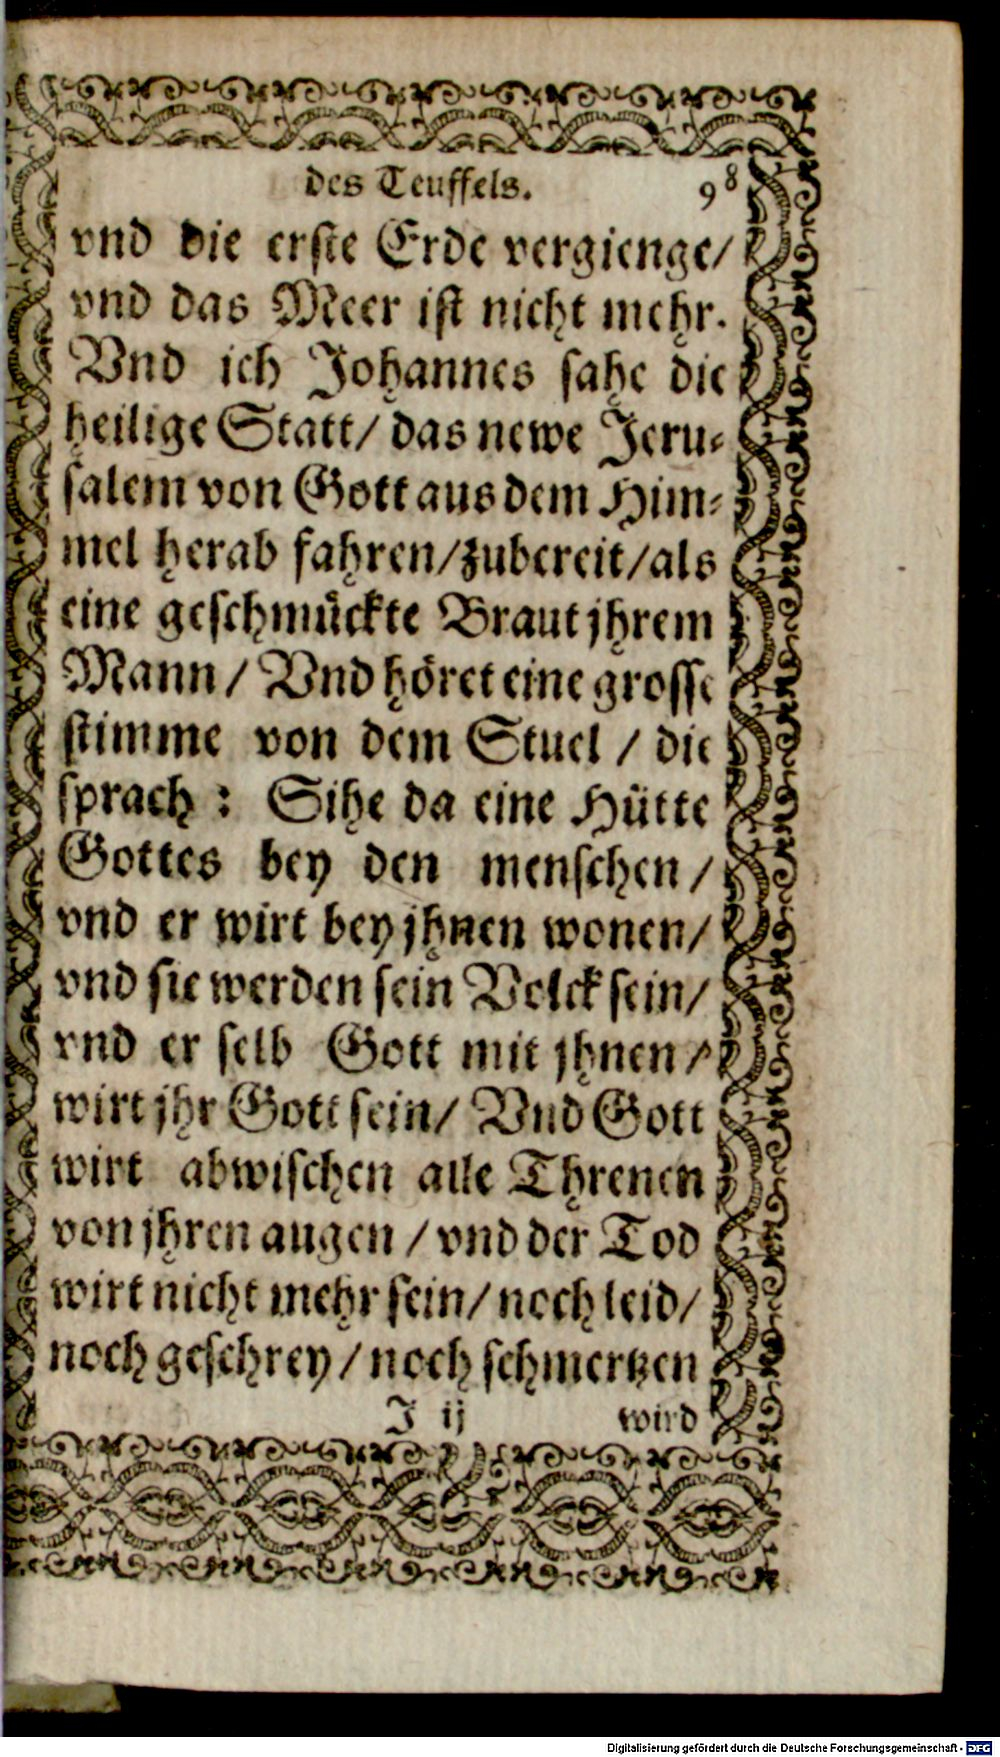 des Teuffels. 98
vnd die erſte Erde vergienge/
vnd das Meer iſt nicht mehr.
Vnd ich Johannes ſahe die
heilige Statt/ das newe Jeru⸗
ſalem von Gott aus dem Him⸗
mel herab fahren/zubereit/als
eine geſchmückte Braut jhrem
Mann / Vnd höret eine groſſe
ſtimme von dem Stuel / die
ſprach : Sihe da eine Hütte
Gottes bey den menſchen /
vnd er wirt bey jhnen wonen/
vnd ſie werden ſein Volck ſein/
vnd er ſelb Gott mit jhnen /
wirt jhr Gott ſein/ Vnd Gott
wirt abwiſchen alle Threnen
von jhren augen / vnd der Tod
wirt nicht mehr ſein/ noch leid/
noch geſchrey / noch ſchmertzen
J ij wird
Digitalisierung gefördert durch die Deutsche Forschungsgemeinschaft - DFG